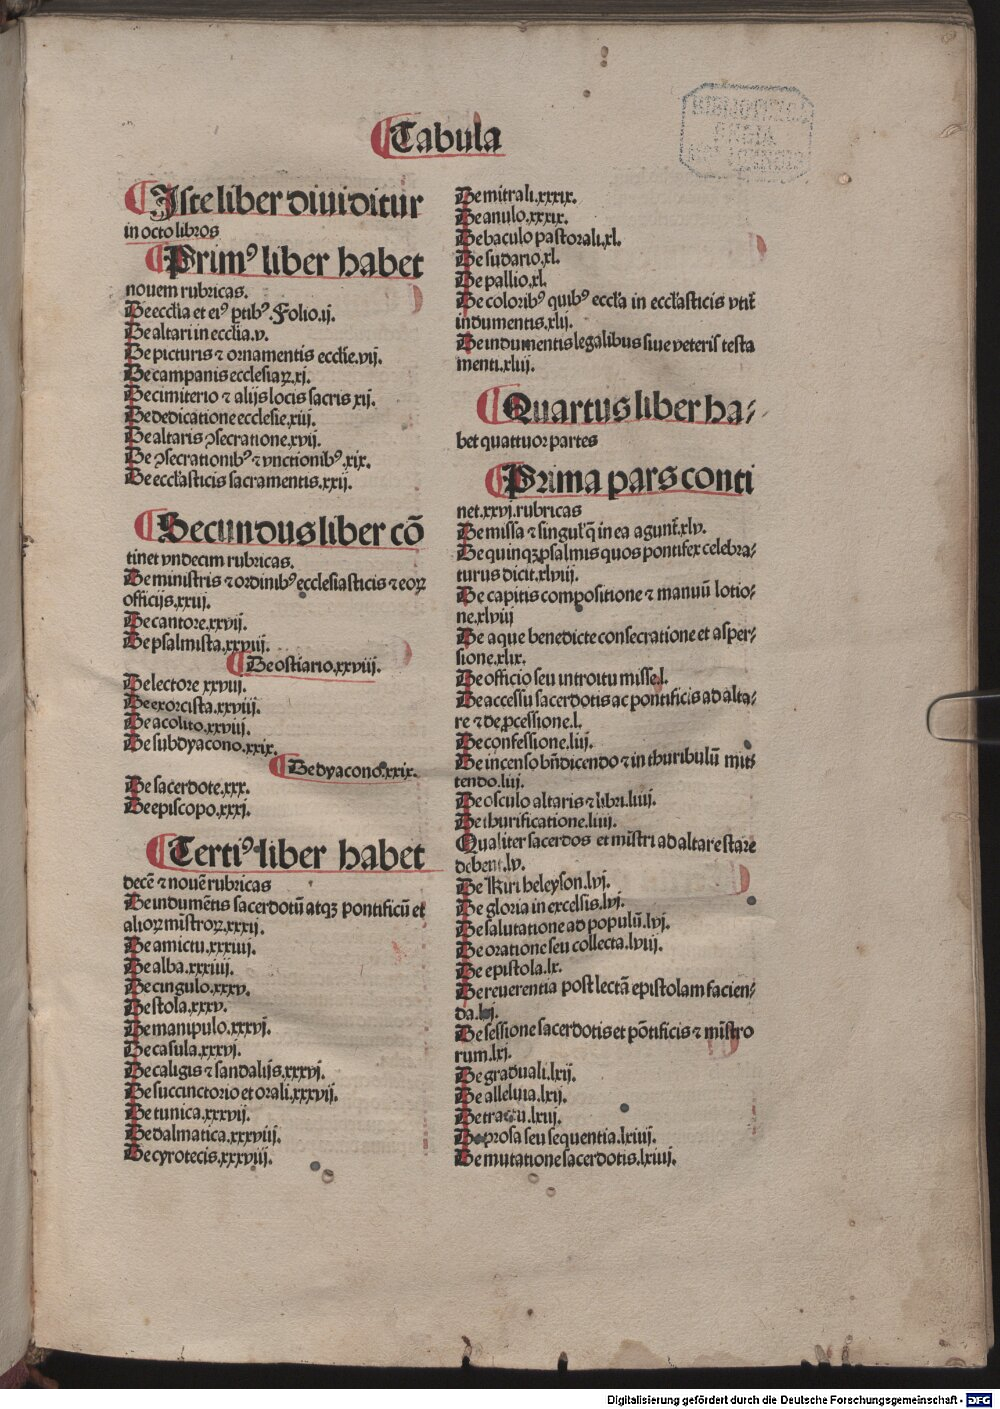 Tabula
Iste liber diuiditur
in octo libros
Primꝰ liber habet
nouem rubricas.
De ecclia et eiꝰ ptibꝰ. Folio.ij.
De altari in ecclia.v.
De picturis ⁊ ornamentis ecclie.vij.
De campanis ecclesiaꝝ.xj.
De cimiterio ⁊ alijs locis sacris xij.
De dedicatione ecclesie.xiij.
De altaris ꝯsecratione.xvij.
De ꝯsecrationibꝰ ⁊ vnctionibꝰ.xix.
De ecclasticis sacramentis.xxij.
Secundus liber cõ
tinet vndecim rubricas.
De ministris ⁊ ordinibꝰ ecclesiasticis ⁊ eoꝝ
officijs.xxvj.
De cantore.xxvij.
De psalmista.xxviij.
De ostiario.xxviij.
De lectore xxviij.
De exorcista.xxviij.
De acolito.xxviij.
De subdyacono.xxix.
De dyacono.xxix.
De sacerdote.xxx.
De episcopo.xxxj.
Tertiꝰ liber habet
decẽ ⁊ nouẽ rubricas
De indumẽtis sacerdotũ atqꝫ pontificũ et
alioꝝ mĩstroꝝ.xxxij.
De amictu.xxxiiij.
De alba.xxxiiij.
De cingulo.xxxv.
De stola.xxxv.
De manipulo.xxxvj.
De casula.xxxvj.
De caligis ⁊ sandalijs.xxxvj.
De succinctorio et orali.xxxvij.
De tunica.xxxvij.
De dalmatica.xxxviij.
De cyrotecis.xxxviij.
De mitrali.xxxix.
De anulo.xxxix.
De baculo pastorali.xl.
De sudario.xl.
De pallio.xl.
De coloribꝰ quibꝰ eccla in ecclasticis vtit̃
indumentis.xlij.
De indumentis legalibus siue veteris testa
menti.xliij.
Quartus liber ha⸗
bet quattuor partes
Prima pars conti
net.xxvj.rubricas
De missa ⁊ singul' q̃ in ea agunt̃.xlv.
De quinqꝫ psalmis quos pontifex celebra⸗
turus dicit.xlviij.
De capitis compositione ⁊ manuũ lotio⸗
ne.xlviij
De aque benedicte consecratione et asper⸗
sione.xlix.
De officio seu introitu misse.l.
De accessu sacerdotis ac pontificis ad alta⸗
re ⁊ de ꝓcessione.l.
De confessione.liij.
De incenso bñdicendo ⁊ in thuribulũ mit⸗
tendo.liij.
De osculo altaris ⁊ libri.liiij.
De thurificatione.liiij.
Qualiter sacerdos et mĩstri ad altare stare
debent.lv.
De Kiri heleyson.lvj.
De gloria in excelsis.lvj.
De salutatione ad populũ.lvj.
De oratione seu collecta.lviij.
De epistola.lx.
De reuerentia post lectã epistolam facien⸗
da.lxj.
De sessione sacerdotis et põtificis ⁊ mĩstro
rum.lxj.
De graduali.lxij.
De alleluia.lxij.
De tractu.lxiij.
De prosa seu sequentia.lxiiij.
De mutatione sacerdotis.lxiiij.
Digitalisierung gefördert durch die Deutsche Forschungsgemeinschaft - DFG